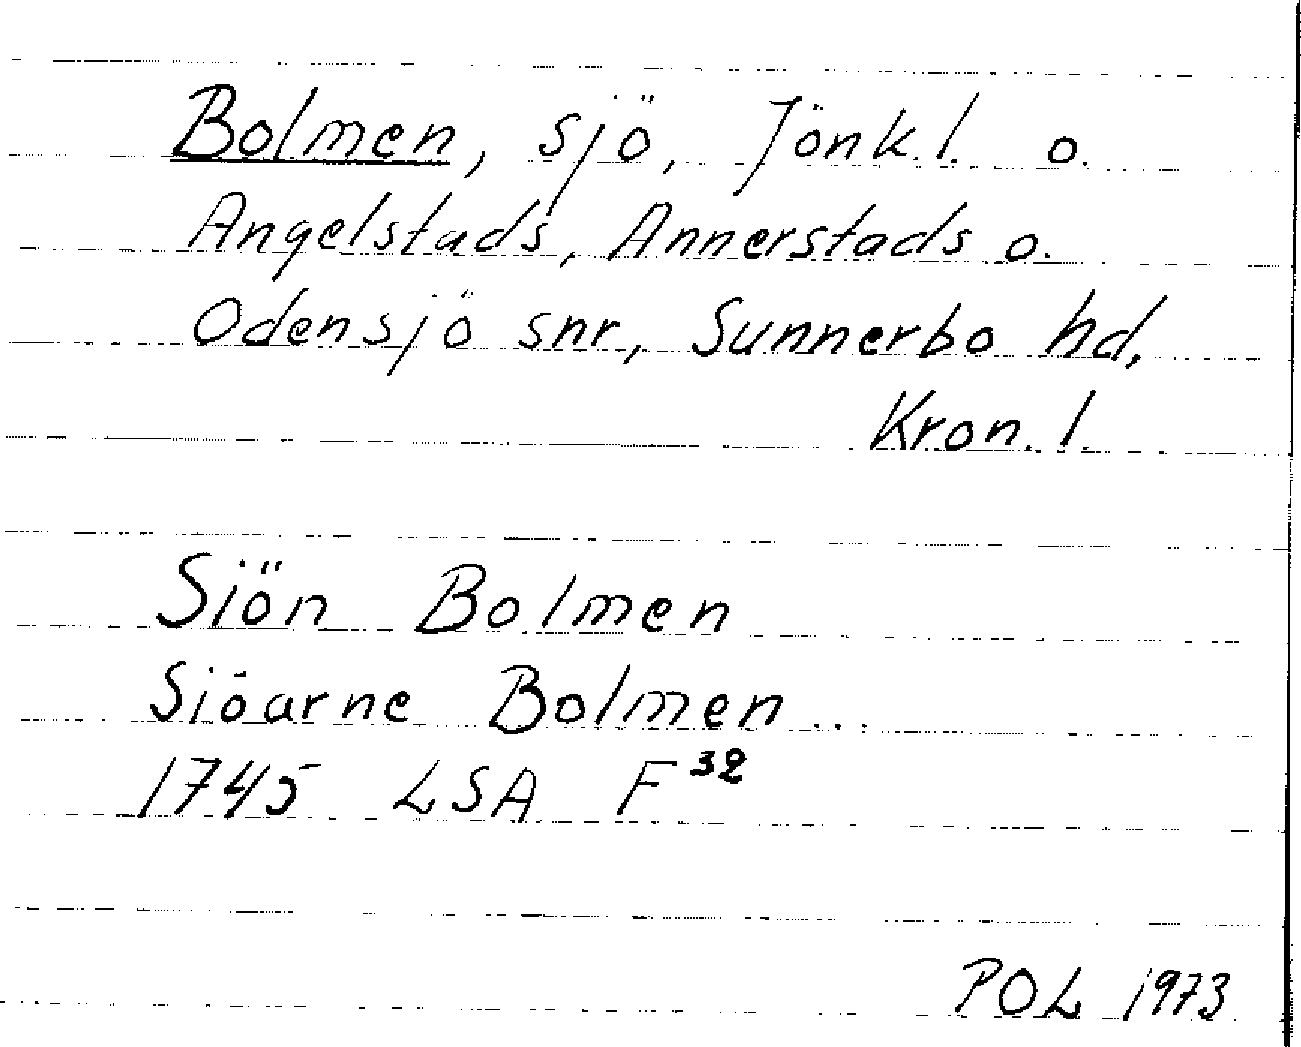 Bolmen, sjö, Jönk. l. o.
Angelstads, Annerstads o.
Odensjö snr, Sunnerbo hd,
Kron. l.
Siön Bolmen
Siöarne Bolmen...
1745 LSA F³²
POL 1973